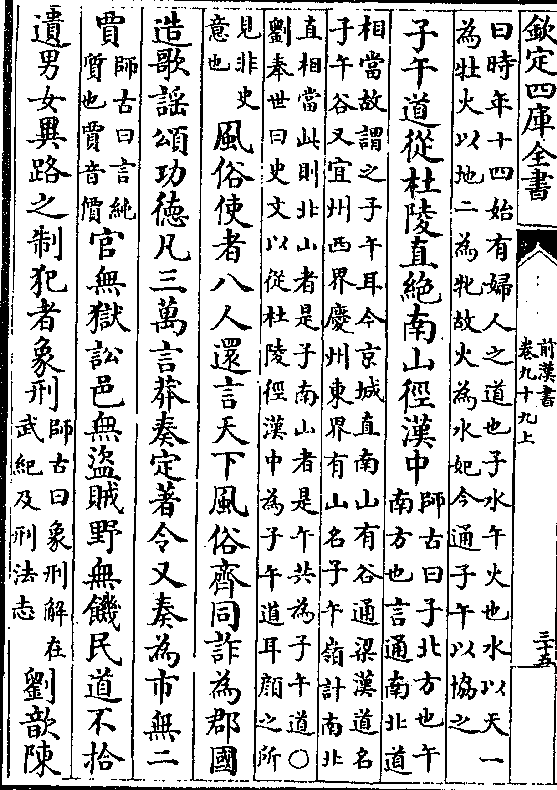 欽定四庫全書
前漢書
卷九十九上
三十五
曰時年十四始有婦人之道也子水午火也水以天一
為牡火以地二為牝故火為水妃今通子午以協之
子午道從杜陵直絶南山徑漢中
師古曰子北方也午
南方也言通南北道
相當故謂之子午耳今京城直南山有谷通梁漢道名
子午谷又宜州西界慶州東界有山名子午嶺計南北
直相當此則北山者是子南山者是午共為子午道〇
劉奉世曰史文以從杜陵徑漢中為子午道耳顔之所
見非史
意也
風俗使者八人還言天下風俗齊同詐為郡國
造歌謡頌功德凡三萬言莽奏定著令又奏為市無二
賈
師古曰言純
質也賈音價
官無獄訟邑無盜賊野無饑民道不拾
遺男女異路之制犯者象刑
師古曰象刑解在
武紀及刑法志
劉歆陳